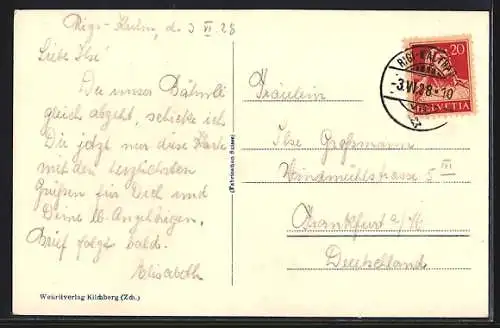 Rigi-Kulm, d. 3 VI 28
Liebe Ilse!
Da unser Bähnli
gleich abgeht, schicke ich
Dir jetzt nur diese Karte
mit den herzlichsten
Grüßen für Dich und
Deine lb. Angehörigen.
Brief folgt bald.
Elisabeth
Wehrliverlag Kilchberg (Zch.)
(Fabrication Suisse)
Fräulein
Ilse Großmann
Windmühlstrasse 5 III
Frankfurt a/M
Deutschland
RIGI KALTBAD
-3.VI.28-10
20
HELVETIA